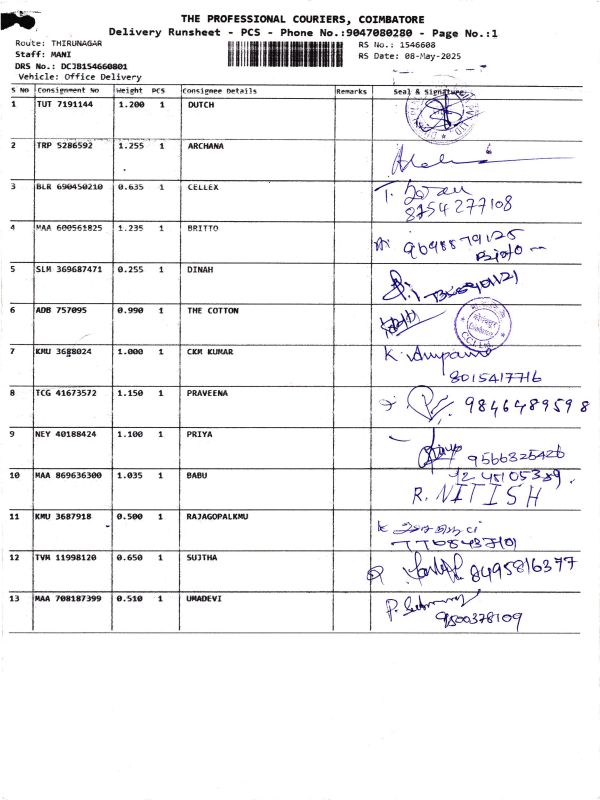 THE PROFESSIONAL COURIERS, COIMBATORE
Delivery Runsheet - PCS - Phone No.:9047080280 - Page No.:1
Route: THIRUNAGAR
Staff: MANI
DRS No.: DCJB154660801
Vehicle: Office Delivery
RS No.: 1546608
RS Date: 08-May-2025
S No Consignment No Weight PCS Consignee Details Remarks Seal & Signature
1 TUT 7191144 1.200 1 DUTCH
2 TRP 5286592 1.255 1 ARCHANA
3 BLR 690450210 0.635 1 CELLEX
8754277108
4 MAA 600561825 1.235 1 BRITTO
5 SLM 369687471 0.255 1 DINAH
6 ADB 757095 0.990 1 THE COTTON
7 KMU 3688024 1.000 1 CKM KUMAR
8015417716
8 TCG 41673572 1.150 1 PRAVEENA
9846489598
9 NEY 40188424 1.100 1 PRIYA
9566325426
10 MAA 869636300 1.035 1 BABU
R. NITISH
11 KMU 3687918 0.500 1 RAJAGOPALKMU
12 TVM 11998120 0.650 1 SUJTHA
8495816377
13 MAA 708187399 0.510 1 UMADEVI
9500378109